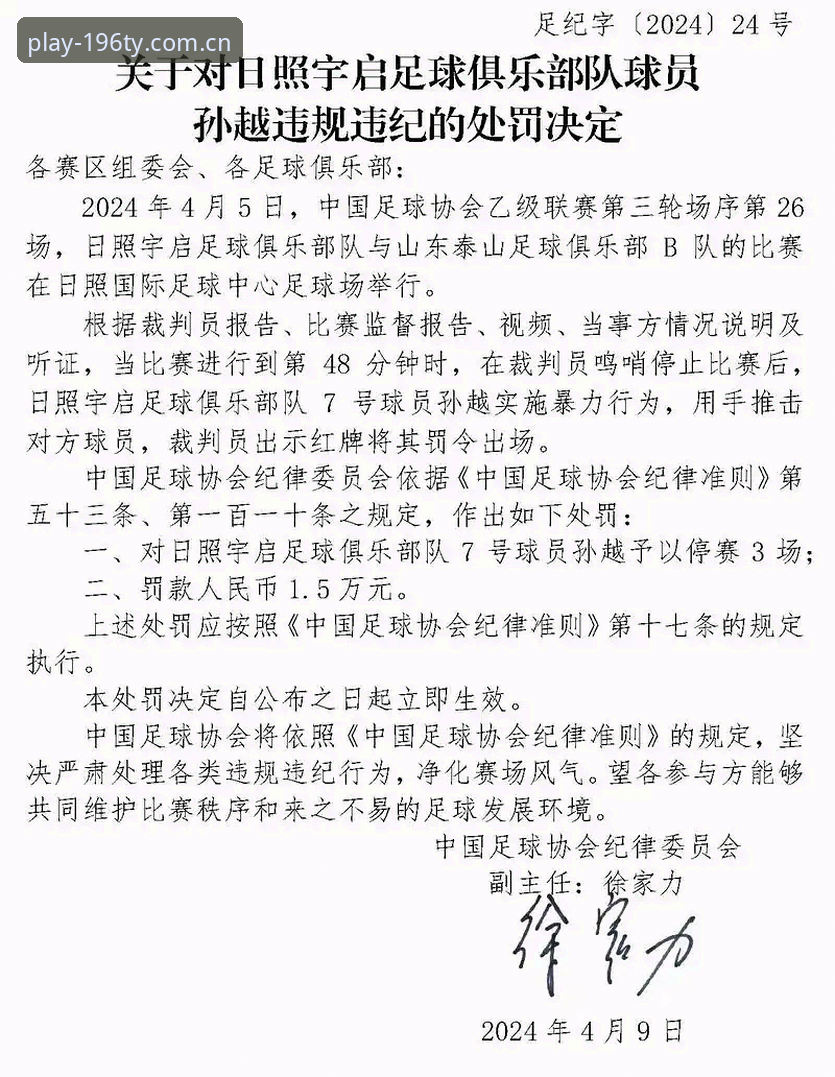 足纪字〔2024〕24号
play-196ty.com.cn
关于对日照宇启足球俱乐部队球员
孙越违规违纪的处罚决定
各赛区组委会、各足球俱乐部：
2024年4月5日，中国足球协会乙级联赛第三轮场序第26
场，日照宇启足球俱乐部队与山东泰山足球俱乐部B队的比赛
在日照国际足球中心足球场举行。
根据裁判员报告、比赛监督报告、视频、当事方情况说明及
听证，当比赛进行到第 48 分钟时，在裁判员鸣哨停止比赛后，
日照宇启足球俱乐部队 7 号球员孙越实施暴力行为，用手推击
对方球员，裁判员出示红牌将其罚令出场。
中国足球协会纪律委员会依据《中国足球协会纪律准则》第
五十三条、第一百一十条之规定，作出如下处罚：
一、对日照宇启足球俱乐部队7号球员孙越予以停赛3场；
二、罚款人民币1.5万元。
上述处罚应按照《中国足球协会纪律准则》第十七条的规定
执行。
本处罚决定自公布之日起立即生效。
中国足球协会将依照《中国足球协会纪律准则》的规定，坚
决严肃处理各类违规违纪行为，净化赛场风气。望各参与方能够
共同维护比赛秩序和来之不易的足球发展环境。
中国足球协会纪律委员会
副主任：徐家力
徐家力
2024年4月9日